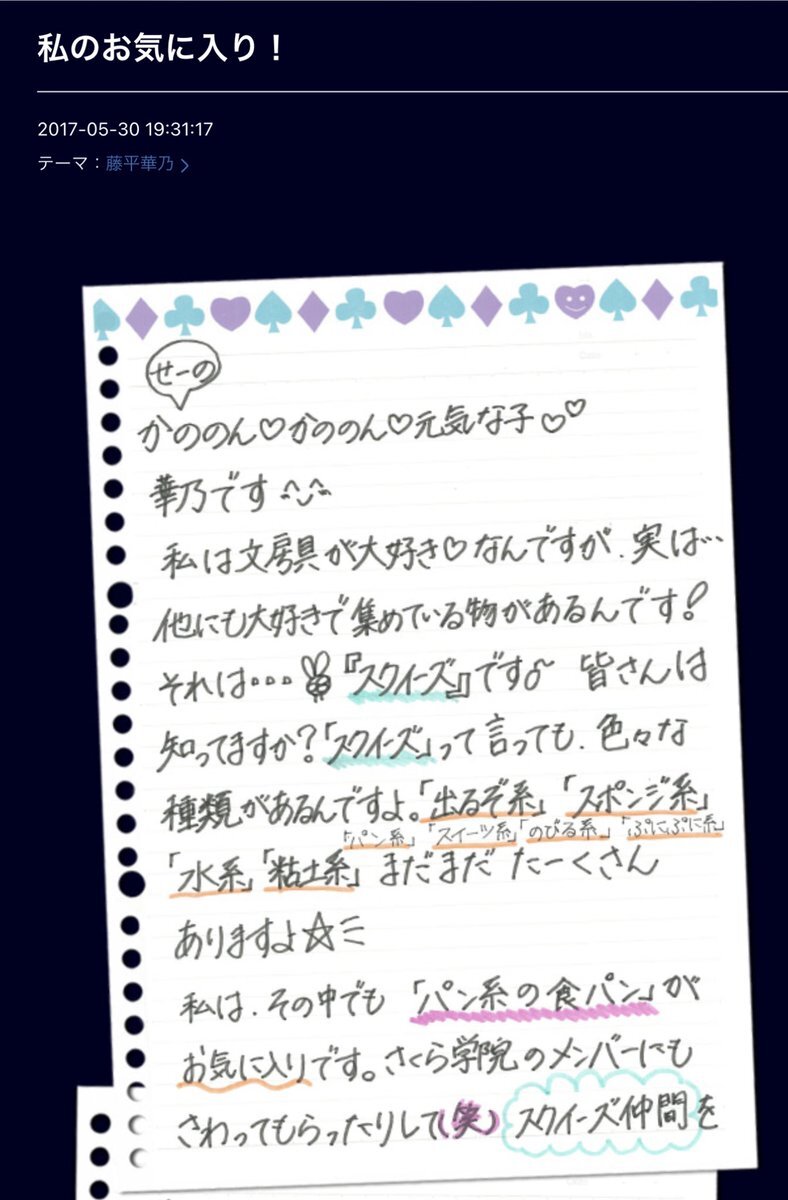 私のお気に入り！
2017-05-30 19:31:17
テーマ：藤平華乃
せーの
かののん♡かののん♡元気な子♡♡
華乃です
私は文房具が大好き♡なんですが、実は…
他にも大好きで集めている物があるんです!
それは…『スクイーズ』です♪ 皆さんは
知ってますか?「スクイーズ」って言っても、色々な
種類があるんですよ。「出るぞ系」「スポンジ系」
「パン系」「スイーツ系」「のびる系」「ぷにぷに系」
「水系」「粘土系」まだまだ たーくさん
ありますよ☆
私は、その中でも「パン系の食パン」が
お気に入りです。さくら学院のメンバーにも
さわってもらったりして(笑) スクイーズ仲間を